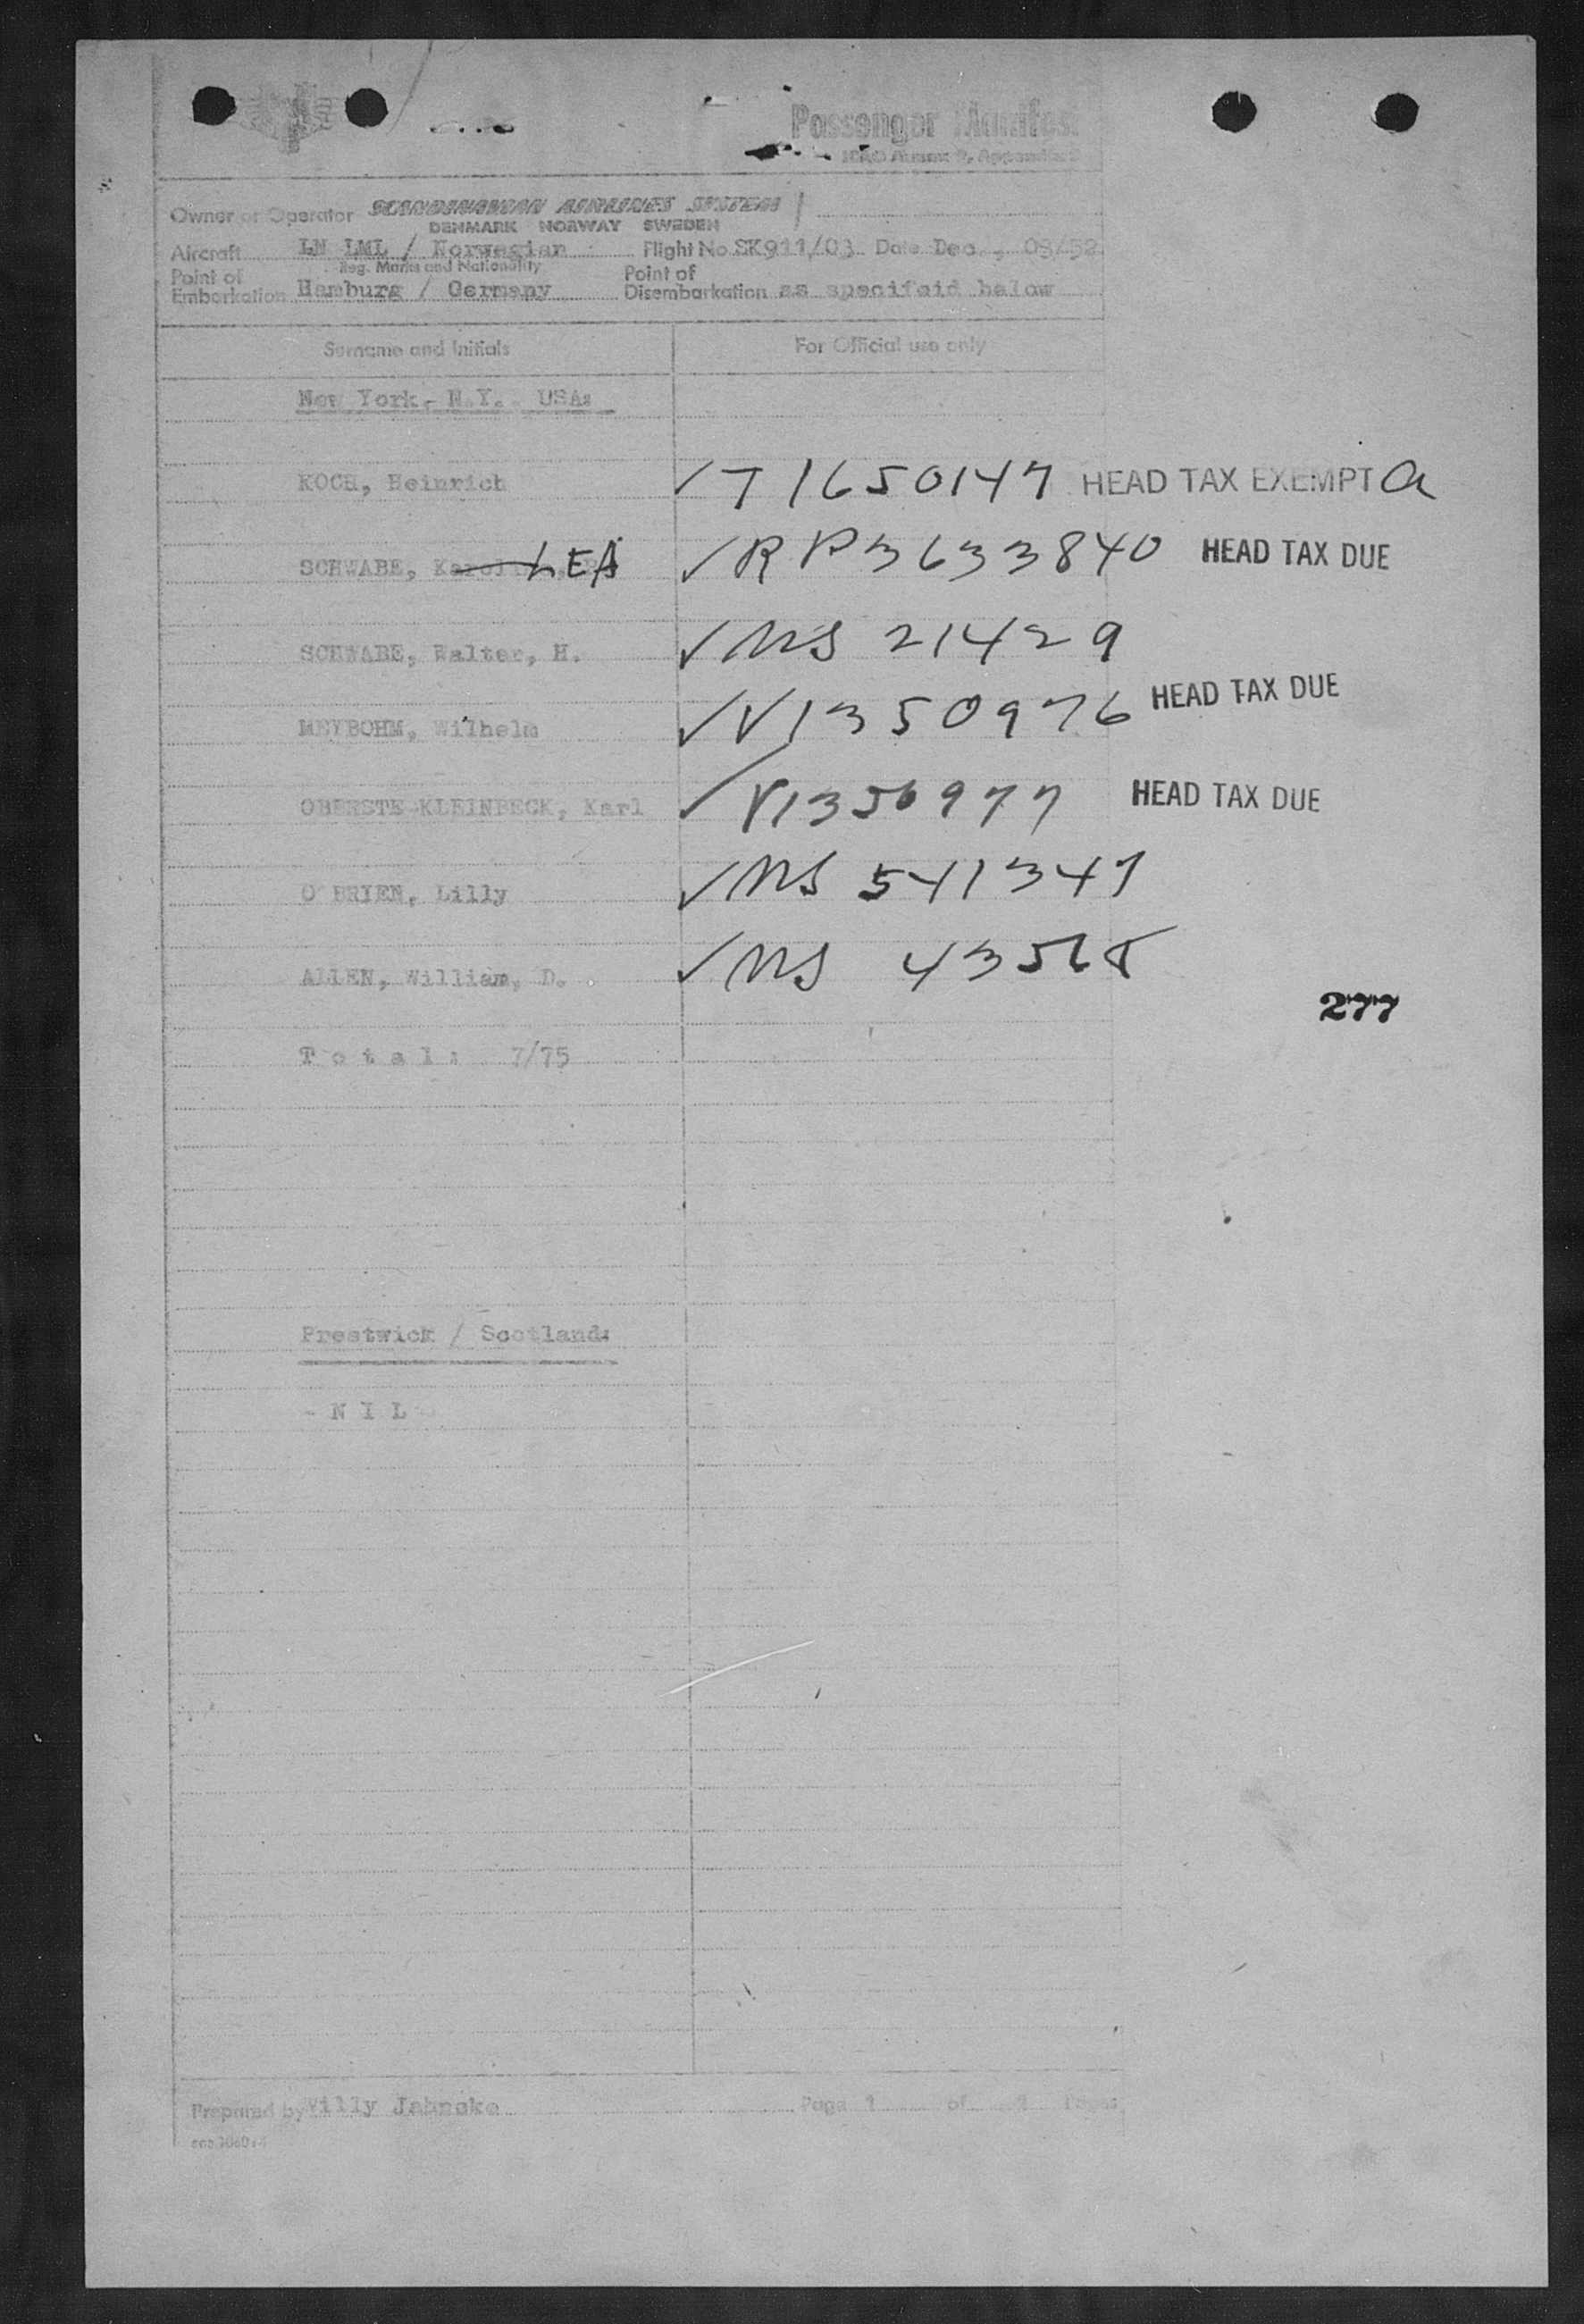 Passenger Manifest
ICAO Annex 9, Appendix
Owner or Operator SCANDINAVIAN AIRLINES SYSTEM
DENMARK NORWAY SWEDEN
Aircraft LN LML / Norwegian Flight No SK911/03 Date Dec., 03/52
Reg. Marks and Nationality
Point of Embarkation Hamburg / Germany Point of Disembarkation as specifeid below
Surname and Initials For Official use only
New York,- N.Y. USA:
KOCH, Heinrich ✓ T 1650147 HEAD TAX EXEMPT a
SCHWABE, LEA ✓ RP3633840 HEAD TAX DUE
SCHWABE, Walter, H. ✓ NS 21429
MEYBOHM, Wilhelm ✓ V1350976 HEAD TAX DUE
OBERSTE-KLEINBECK, Karl ✓ V1350977 HEAD TAX DUE
O'BRIEN, Lilly ✓ NS 541347
ALLEN, William, D. ✓ NS 43568
277
T o t a l : 7/75
Prestwick / Scotland:
- N I L -
Prepared by Willy Jahncke Page 1 of Pages